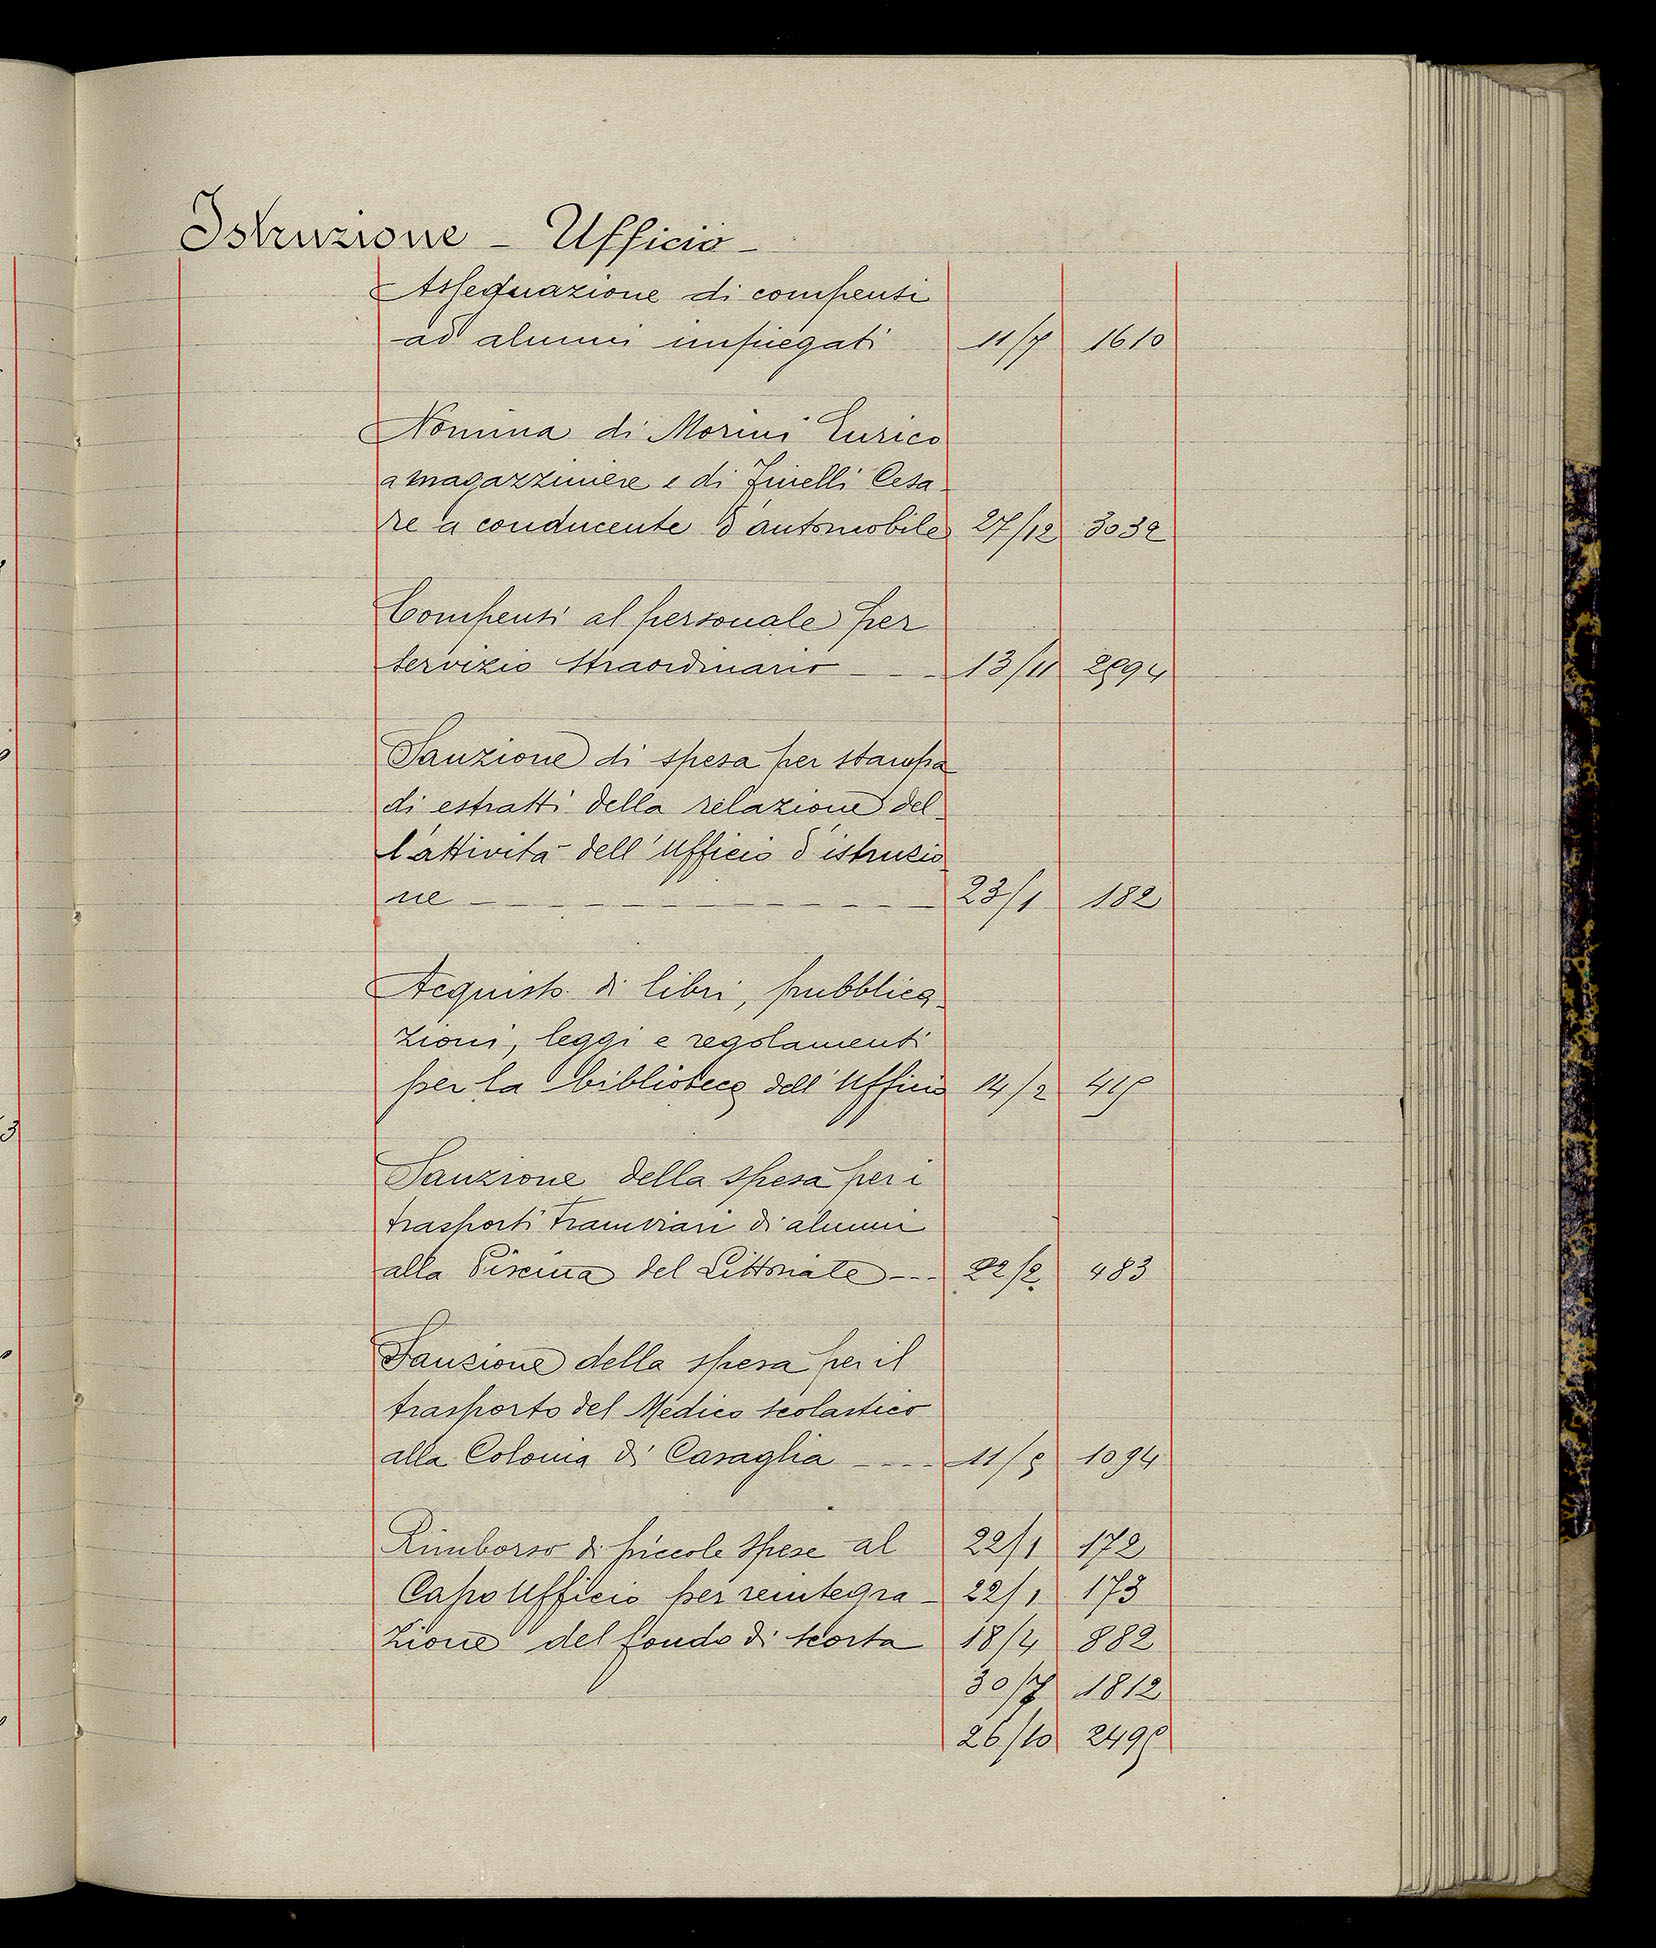 Istruzione - Ufficio -
Assegnazione di compensi
ad alunni impiegati 11/7 1610
Nomina di Morini Enrico
a magazziniere e di Zinelli Cesa-
re a conducente d'automobile 27/12 3032
Compensi al personale per
servizio straordinario - - - 13/11 2594
Sanzione di spesa per stampa
di estratti della relazione del-
l'attività dell'Ufficio d'istruzio-
ne - - - - - - - - - - - - 23/1 182
Acquisto di libri, pubblica-
zioni, leggi e regolamenti
per la biblioteca dell'Ufficio 14/2 415
Sanzione della spesa per i
trasporti tramviari di alunni
alla Piscina del Littoriale --- 22/2 483
Sanzione della spesa per il
trasporto del Medico scolastico
alla Colonia di Casaglia - - - - 11/5 1094
Rimborso di piccole spese al 22/1 172
Capo Ufficio per reintegra- 22/1 173
zione del fondo di scorta 18/4 882
30/7 1812
26/10 2495